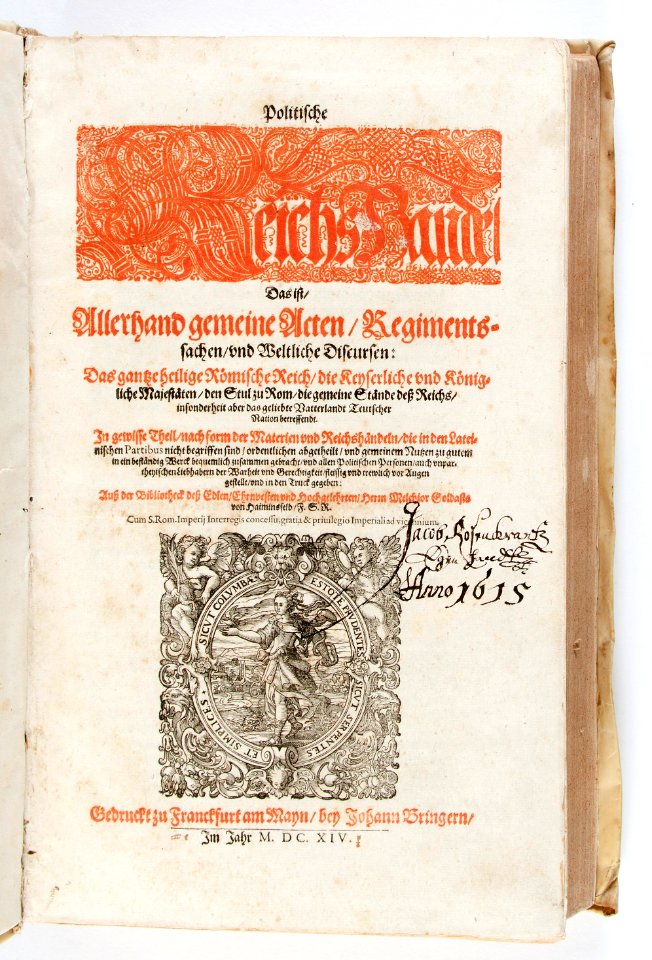 Politische
Reichs Händel
Das ist/
Allerhand gemeine Acten / Regiments-
sachen/vnd Weltliche Discursen:
Das gantze heilige Römische Reich/die Keyserliche vnd König-
liche Majestäten/den Stul zu Rom/die gemeine Stände deß Reichs/
insonderheit aber das geliebte Vatterlandt Teutscher
Nation betreffendt.
In gewisse Theil/nach form der Materien vnd Reichshändeln/die in den Latei-
nischen Partibus nicht begriffen sind/ordentlichen abgetheilt/vnd gemeinem Nutzen zu gutem
in ein beständig Werck bequemlich zusammen gebracht/vnd allen Politischen Personen/auch vnpar-
theyischen Liebhabern der Warheit vnd Gerechtigkeit/fleissig vnd trewlich vor Augen
gestellt/vnd in den Truck gegeben:
Auß der Bibliotheck deß Edlen/Ehrnvesten vnd Hochgelehrten/Herrn Melchior Goldasts
von Haiminsfeld/F. S. R.
Cum S. Rom. Imperij Interregis concessu, gratia & priuilegio Imperiali ad vicennium
Jacob Rosenckrantz
Anno 1615
ESTOTE PRUDENTES SICUT SERPENTES ET SIMPLICES SICUT COLVMBA
Gedruckt zu Franckfurt am Mayn/bey Johann Bringern/
Im Jahr M. DC. XIV.